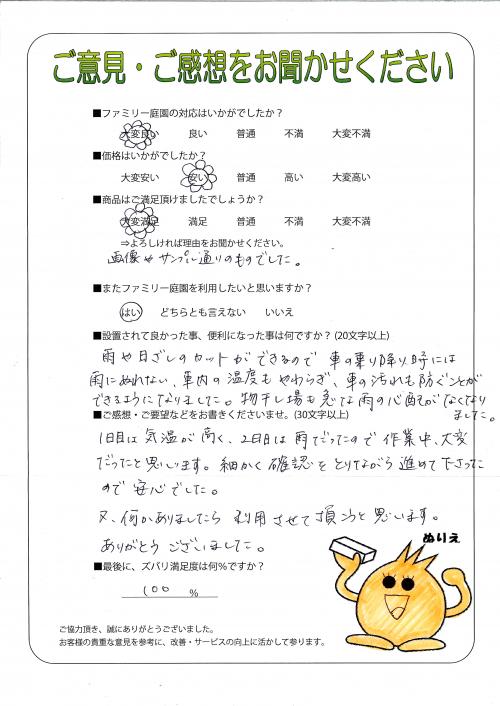 ご意見・ご感想をお聞かせください
■ファミリー庭園の対応はいかがでしたか？
大変良い 良い 普通 不満 大変不満
■価格はいかがでしたか？
大変安い 安い 普通 高い 大変高い
■商品はご満足頂けましたでしょうか？
大変満足 満足 普通 不満 大変不満
⇒よろしければ理由をお聞かせください。
画像やサンプル通りのものでした。
■またファミリー庭園を利用したいと思いますか？
はい どちらとも言えない いいえ
■設置されて良かった事、便利になった事は何ですか？(20文字以上)
雨や日ざしのカットができるので 車の乗り降り時には
雨にぬれない、車内の温度もやわらぎ、車の汚れも防ぐことが
できるようになりました。物干し場も急な雨の心配がなくなり
ました。
■ご感想・ご要望などをお書きくださいませ。(30文字以上)
1日目は気温が高く、2日目は雨だったので作業中、大変
だったと思います。細かく確認をとりながら進めて下さった
ので安心でした。
又、何かありましたら利用させて頂こうと思います。
ありがとうございました。
ぬりえ
■最後に、ズバリ満足度は何％ですか？
100 %
ご協力頂き、誠にありがとうございました。
お客様の貴重な意見を参考に、改善・サービスの向上に活かして参ります。